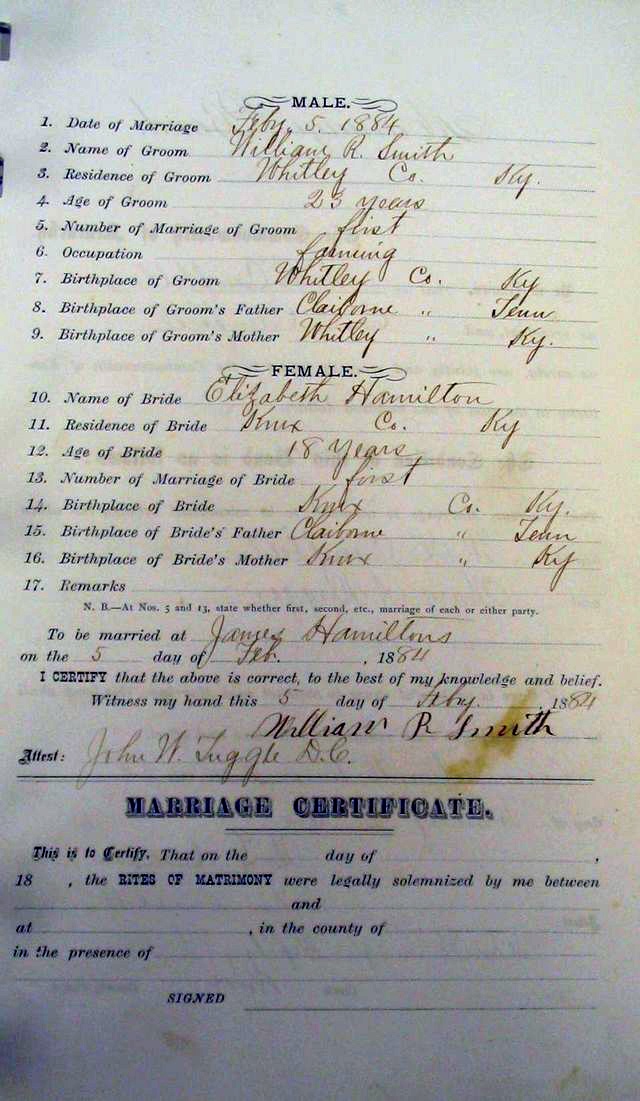 MALE.
1. Date of Marriage Feby. 5. 1884
2. Name of Groom William R. Smith
3. Residence of Groom Whitley Co. Ky.
4. Age of Groom 23 years
5. Number of Marriage of Groom first
6. Occupation farming
7. Birthplace of Groom Whitley Co. Ky
8. Birthplace of Groom's Father Claiborne " Tenn
9. Birthplace of Groom's Mother Whitley " Ky.
FEMALE.
10. Name of Bride Elizabeth Hamilton
11. Residence of Bride Knox Co. Ky
12. Age of Bride 18 years
13. Number of Marriage of Bride first
14. Birthplace of Bride Knox Co. Ky.
15. Birthplace of Bride's Father Claiborne " Tenn
16. Birthplace of Bride's Mother Knox " Ky
17. Remarks
N. B.—At Nos. 5 and 13, state whether first, second, etc., marriage of each or either party.
To be married at James Hamiltons
on the 5 day of Feb. , 1884
I CERTIFY that the above is correct, to the best of my knowledge and belief.
Witness my hand this 5 day of Feby. , 1884
William R Smith
Attest: John W. Tuggle D.C.
MARRIAGE CERTIFICATE.
This is to Certify, That on the day of ,
18 , the RITES OF MATRIMONY were legally solemnized by me between
and
at , in the county of
in the presence of
SIGNED